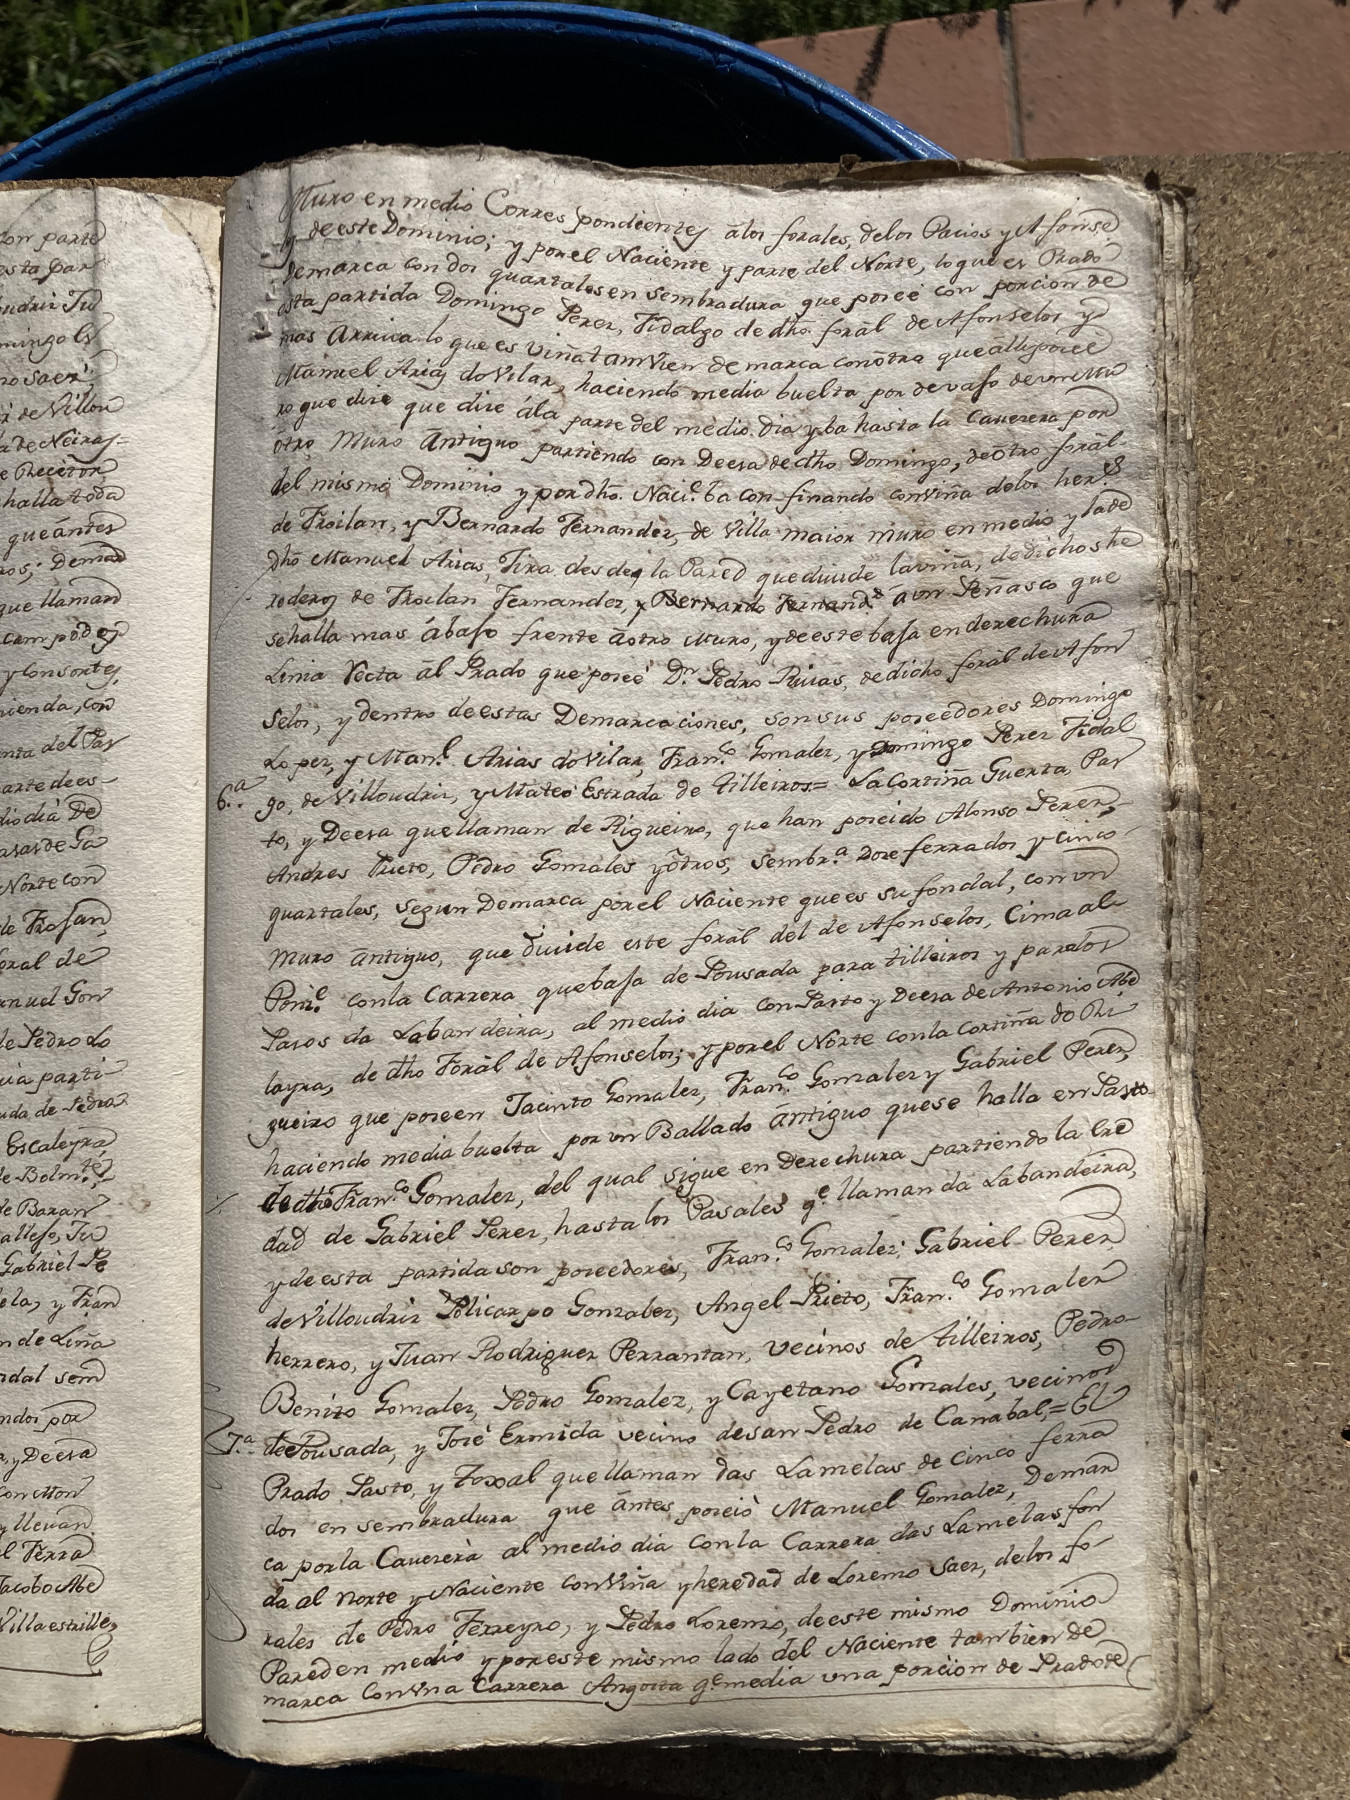 con parte
esta par
oudriz Tu
mingo Es
ro Saer,
ri de Villou
la de Neiras=
e Recitor
halla toda
que ántes
ros; Demar
que llaman
campo de
y Consortes,
cienda, con
nta del Par
parte de es-
dio dia De
asas de Ga
Norte con
de Frojan,
oral de
anuel Gon
de Pedro Lo
uia parti-
uda de Pedro
Escaleyra
de Bolm.te
de Baran
allejo, Tu
Gabriel Pe
ela, y Fran
n de Liña
ndal sem
ndos por
a, y Deesa
con Mon
y llevan
el Ferra
Jacobo Abe
Villaestille,
Muro en medio Correspondientes álos forales, delos Pacios y Afonse
y de este Dominio; y por el Naciente y parte del Norte, lo que es Prado
demarca con dos quartales en sembradura que poseé con porcion de
esta partida Domingo Perez, Fidalgo de dho. forál de Afonselos y
mas Arriva lo que es viña tamvien demarca con ôtra que âlli poseé
Manuel Arias do Vilar, haciendo media buelta por devajo de un Mu
ro que dize que dize ála parte del medio dia y ba hasta la Cauezera por
ôtro Muro ântiguo partiendo con Deesa de dho Domingo, de ôtro forál
del mismo Dominio y por dho. Naci.e ba con finando con viña delos her.s
de Froilan, y Bernardo Fernandez, de Villa maior muro en medio y la de
dho Manuel Arias, Tira desde la Pared que diuide la viña, de dichos he
rederos de Froilan Fernandez, y Bernardo Fernand.z â un Peñasco que
se halla mas ábajo frente âotro Muro, y de este baja en derechura
Linia Recta âl Prado que poseé D.n Pedro Riuas, de dicho forál de Afon
selos, y dentro de estas Demarcaciones, son sus poseedores Domingo
Lopez, y Man.l Arias do Vilar, Fran.co Gonzalez, y Domingo Perez Fidal
6.a go, de Villoudriz, y Mateo Estrada de Tilleiros= La Cortiña Guerta, Pas
to, y Deesa que llaman de Rigueiro, que han poseido Alonso Perez,
Andres Prieto, Pedro Gonzales y ôtros, sembr.a Doze ferrados y cinco
quartales, segun Demarca por el Naciente que es su fondal, con un
Muro ântiguo, que diuide este forál del de Afonselos, Cima al
Poni.e con la Carrera que baja de Pousada para Tilleiros y para los
Pasos da Labandeira, al medio dia con Pasto y Deesa de Antonio Abe
layra, de dho Forál de Afonselos; y por el Norte con la Cortiña do Ri
gueiro que poseen Jacinto Gonzalez, Fran.co Gonzalez y Gabriel Perez,
haciendo media buelta por un Ballado ântiguo que se halla en Pasto
de dho Fran.co Gonzalez, del qual sigue en Derechura partiendo la Ere
dad de Gabriel Perez, hasta los Pasales q.e llaman da Labandeira,
y de esta partida son poseedores, Fran.co Gonzalez; Gabriel Perez,
de Villoudriz Policarpo Gonzalez, Angel Prieto, Fran.co Gonzalez
herrero, y Juan Rodriguez Perrantan, vecinos de Tilleiros, Pedro
Benito Gonzalez, Pedro Gonzalez, y Cayetano Gonzales, vecinos
7.a de Pousada, y José Ermida vecino de san Pedro de Canabal,= El
Prado Pasto, y Toxal que llaman das Lamelas de Cinco ferra
dos en sembradura que ântes poseiò Manuel Gonzalez, Demar
ca por la Cauezera al medio dia con la Carrera das Lamelas fon
da al Norte y Naciente con Viña y heredad de Lorenzo Saez, delos fo-
rales de Pedro Ferreyro, y Pedro Lorenzo, de este mismo Dominio
Pared en medio y por este mismo lado del Naciente tambien De
marca con vna Carrera Angosta q.e media una porcion de Prado de